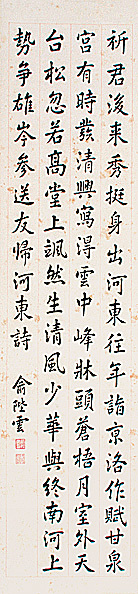 祈君後来秀挺身出河東往年詣京洛作賦甘泉
宮有時發清興寫得雲中峰牀頭蒼梧月室外天
台松忽若高堂上颯然生清風少華與終南河上
勢爭雄岑參送友歸河東詩
俞陛雲